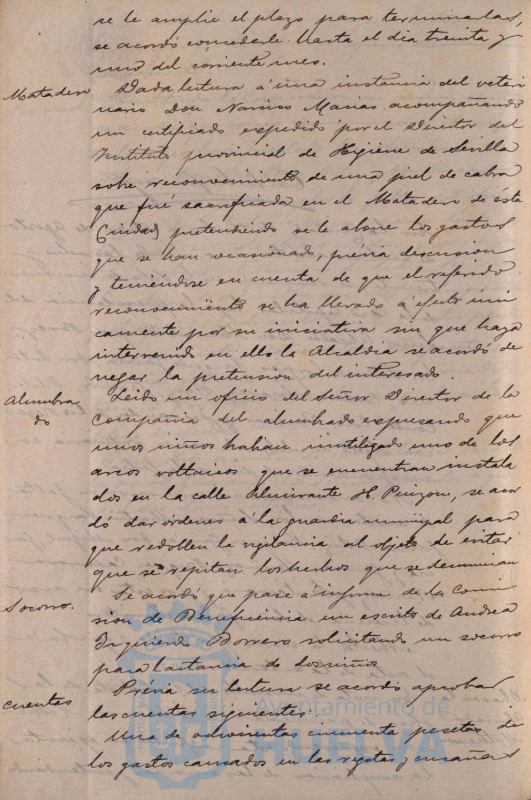 se le amplie el plazo para terminarlas
se acordó concederle hasta el dia treinta y
uno del corriente mes.
Matadero Dada lectura á una instancia del veteri
nario Don Narciso Macias acompañando
un certificado expedido por el Director del
Instituto provincial de Higiene de Sevilla
sobre reconocimiento de una piel de cabra
que fué sacrificada en el Matadero de ésta
Ciudad pretendiendo se le abone los gastos
que se han ocasionado, prévia discusion
y teniendose en cuenta de que el referido
reconocimiento se ha llevado á efecto úni
camente por su iniciativa sin que haya
intervenido en ello la Alcaldia se acordó de
negar la pretension del interesado.
Alumbra Leido un oficio del Señor Director de la
do Compañia del alumbrado expresando que
unos niños habian inutilizado uno de los
arcos voltaicos que se encuentran instala
dos en la calle Almirante H. Pinzon, se acor
dó dar órdenes á la guardia municipal para
que redoblen la vigilancia al objeto de evitar
que se repitan los hechos que se denuncian
Socorro. Se acordó que pase á informe de la Comi
sion de Beneficencia un escrito de Andrea
Izquierdo Borrero solicitando un socorro
para lactancia de dos niños
cuentas Prévia su lectura se acordó aprobar
las cuentas siguientes.
Una de doscientas cincuenta pesetas de
los gastos causados en las regatas y cucañas
Ayuntamiento de
HUELVA